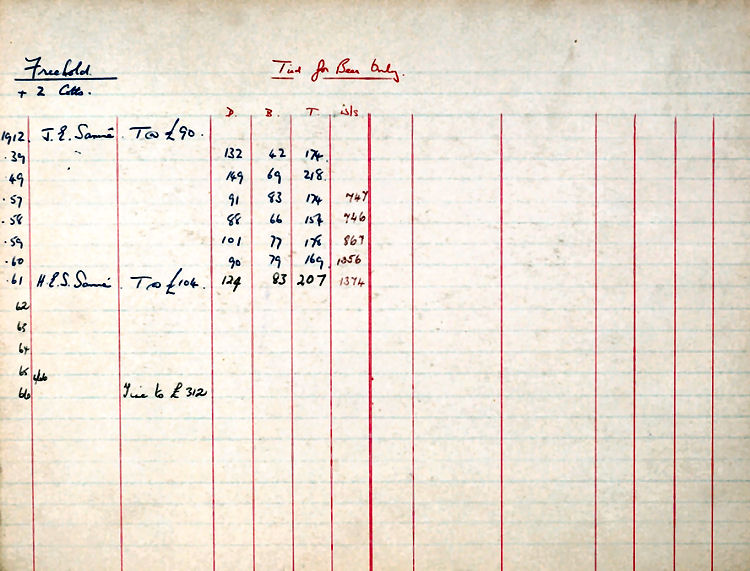 Freehold. Tied for Beer Only.
+ 2 Cotts.
D. B. T. W/S
1912. J. E. Sammé T @ £90.
.39 132 42 174.
.49 149 69 218.
.57 91 83 174 747
.58 88 66 154 746
.59 101 77 178 867
.60 90 79 169 1356
.61 H.E.S. Sammé T @ £104. 124 83 207 1374
62
63
64
65
66 4/66 to £312